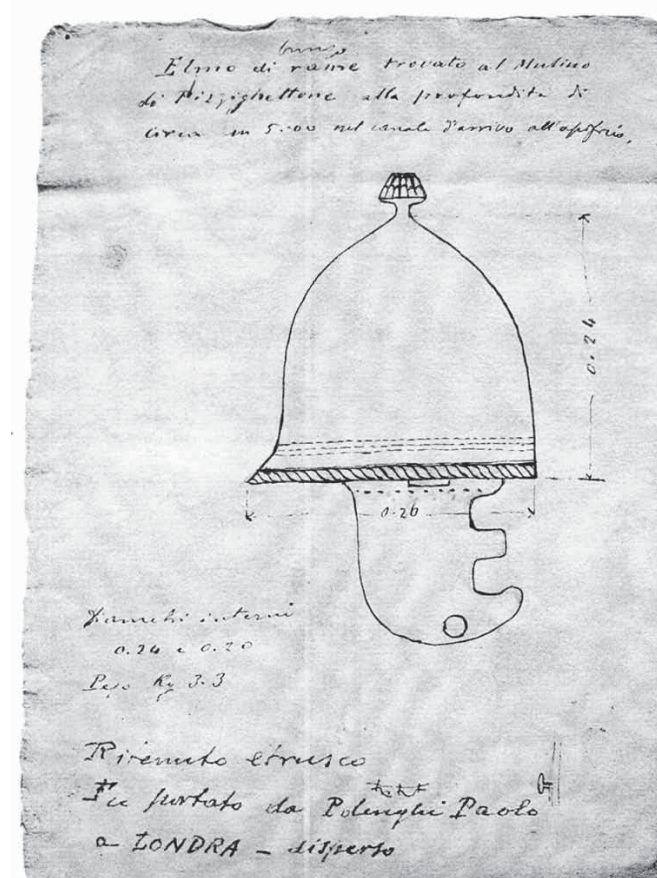 bronzo
Elmo di rame trovato al Mulino
di Pizzighettone alla profondità di
circa m 5.00 nel canale d'arrivo all'opificio.
0.24
0.26
Diametri interni
0.24 e 0.20
Peso Kg 3.3
Ritenuto etrusco
Fu portato da Polenghi Paolo
a LONDRA - disperso